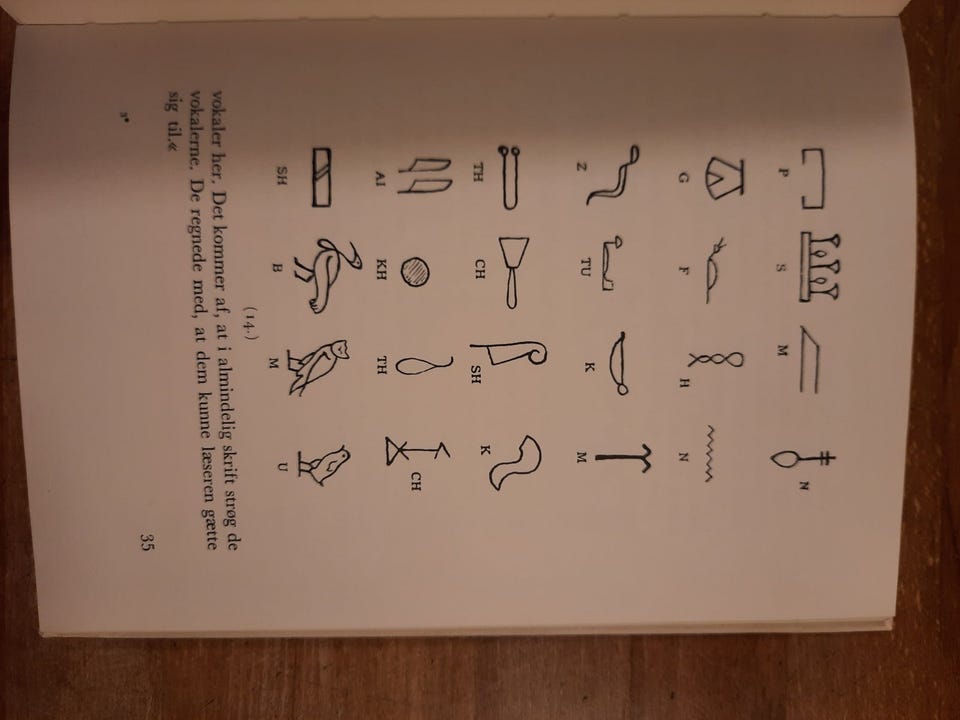 P S M N
G F H N
Z TU K M
TH CH SH K
AI KH TH CH
SH B M U
(14.)
vokaler her. Det kommer af, at i almindelig skrift strøg de
vokalerne. De regnede med, at dem kunne læseren gætte
sig til.«
35
3*